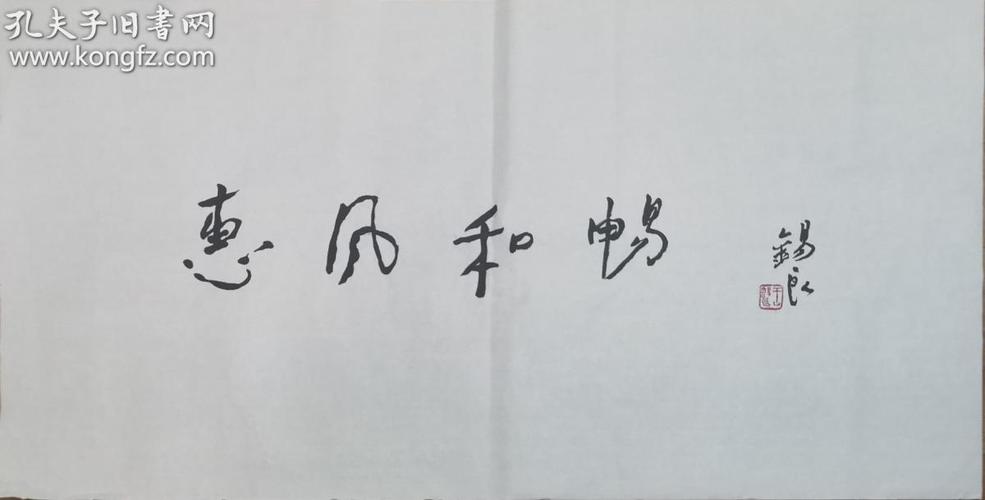 孔夫子旧書网
www.kongfz.com
惠风和暢
錫良